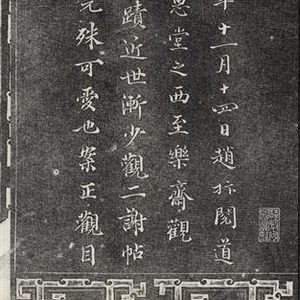 年十一月十四日趙抃閱道
思堂之西至樂齋觀
蹟近世漸少觀二謝帖
光殊可愛也蔡正觀目